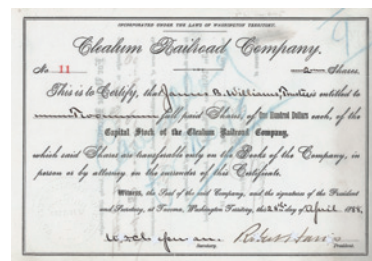 INCORPORATED UNDER THE LAWS OF WASHINGTON TERRITORY.
Clealum Railroad Company.
No. 11 2 Shares.
This is to Certify, the James B. Williams, Trustee is entitled to
Two full paid Shares, of One Hundred Dollars each, of the
Capital Stock of the Clealum Railroad Company,
which said Shares are transferable only on the Books of the Company, in
person or by attorney on the surrender of this Certificate.
Witness, the Seal of the said Company, and the signature of the President
and Secretary, at Tacoma, Washington Territory, this 28th day of April 1888.
Secretary. President.